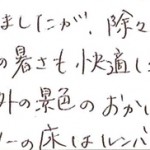 ましたが、除々
の暑さも快適し
外の景色のおか
ーの床はルンバ